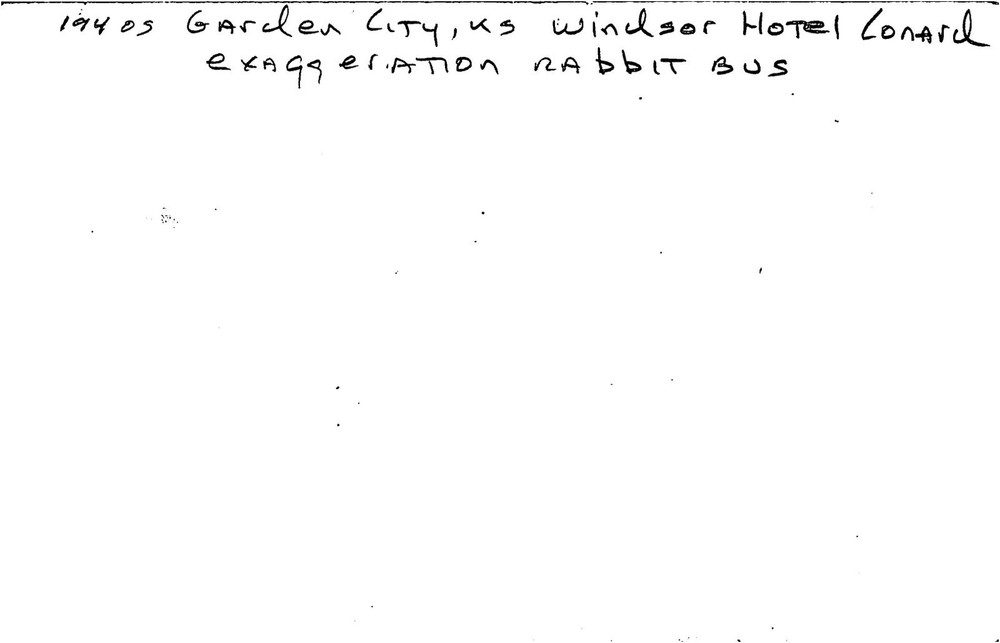 1940s Garden City, KS Windsor Hotel Conard
exaggeration Rabbit Bus